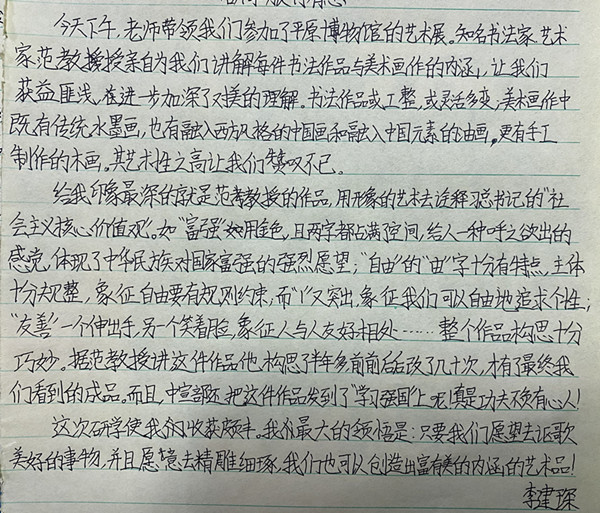 今天下午,老师带领我们参加了平原博物馆的艺术展。知名书法家、艺术
家范孝教授授亲自为我们讲解每件书法作品与美术画作的内涵,让我们
获益匪浅,在进一步加深了对美的理解。书法作品或工整,或灵活多变,美术画作中
既有传统水墨画,也有融入西方风格的中国画和融入中国元素的油画。更有手工
制作的木画。其艺术性之高让我们赞叹不已。
给我印象最深的就是范孝教授的作品,用形象的艺术去诠释习总书记的"社
会主义核心价值观"。如"富强"如用金色,且两字都占满空间,给人一种呼之欲出的
感觉,体现了中华民族对国家富强的强烈愿望;"自由"的"由"字十分有特点,主体
十分规整,象征自由要有规则约束,而"丨"又突出,象征我们可以自由地追求个性;
"友善"一个伸出手,另一个笑着脸,象征人与人友好相处……整个作品构思十分
巧妙。据范教授讲这件作品他构思了半年多前前后后改了几十次,才有了最终我
们看到的成品。而且,中宣部还把这件作品发到了"学习强国"上呢!真是功夫不负有心人!
这次研学使我们收获颇丰。我们最大的领悟是:只要我们愿望去讴歌
美好的事物,并且愿意去精雕细琢,我们也可以创造出富有美的内涵的艺术品!
李建琛